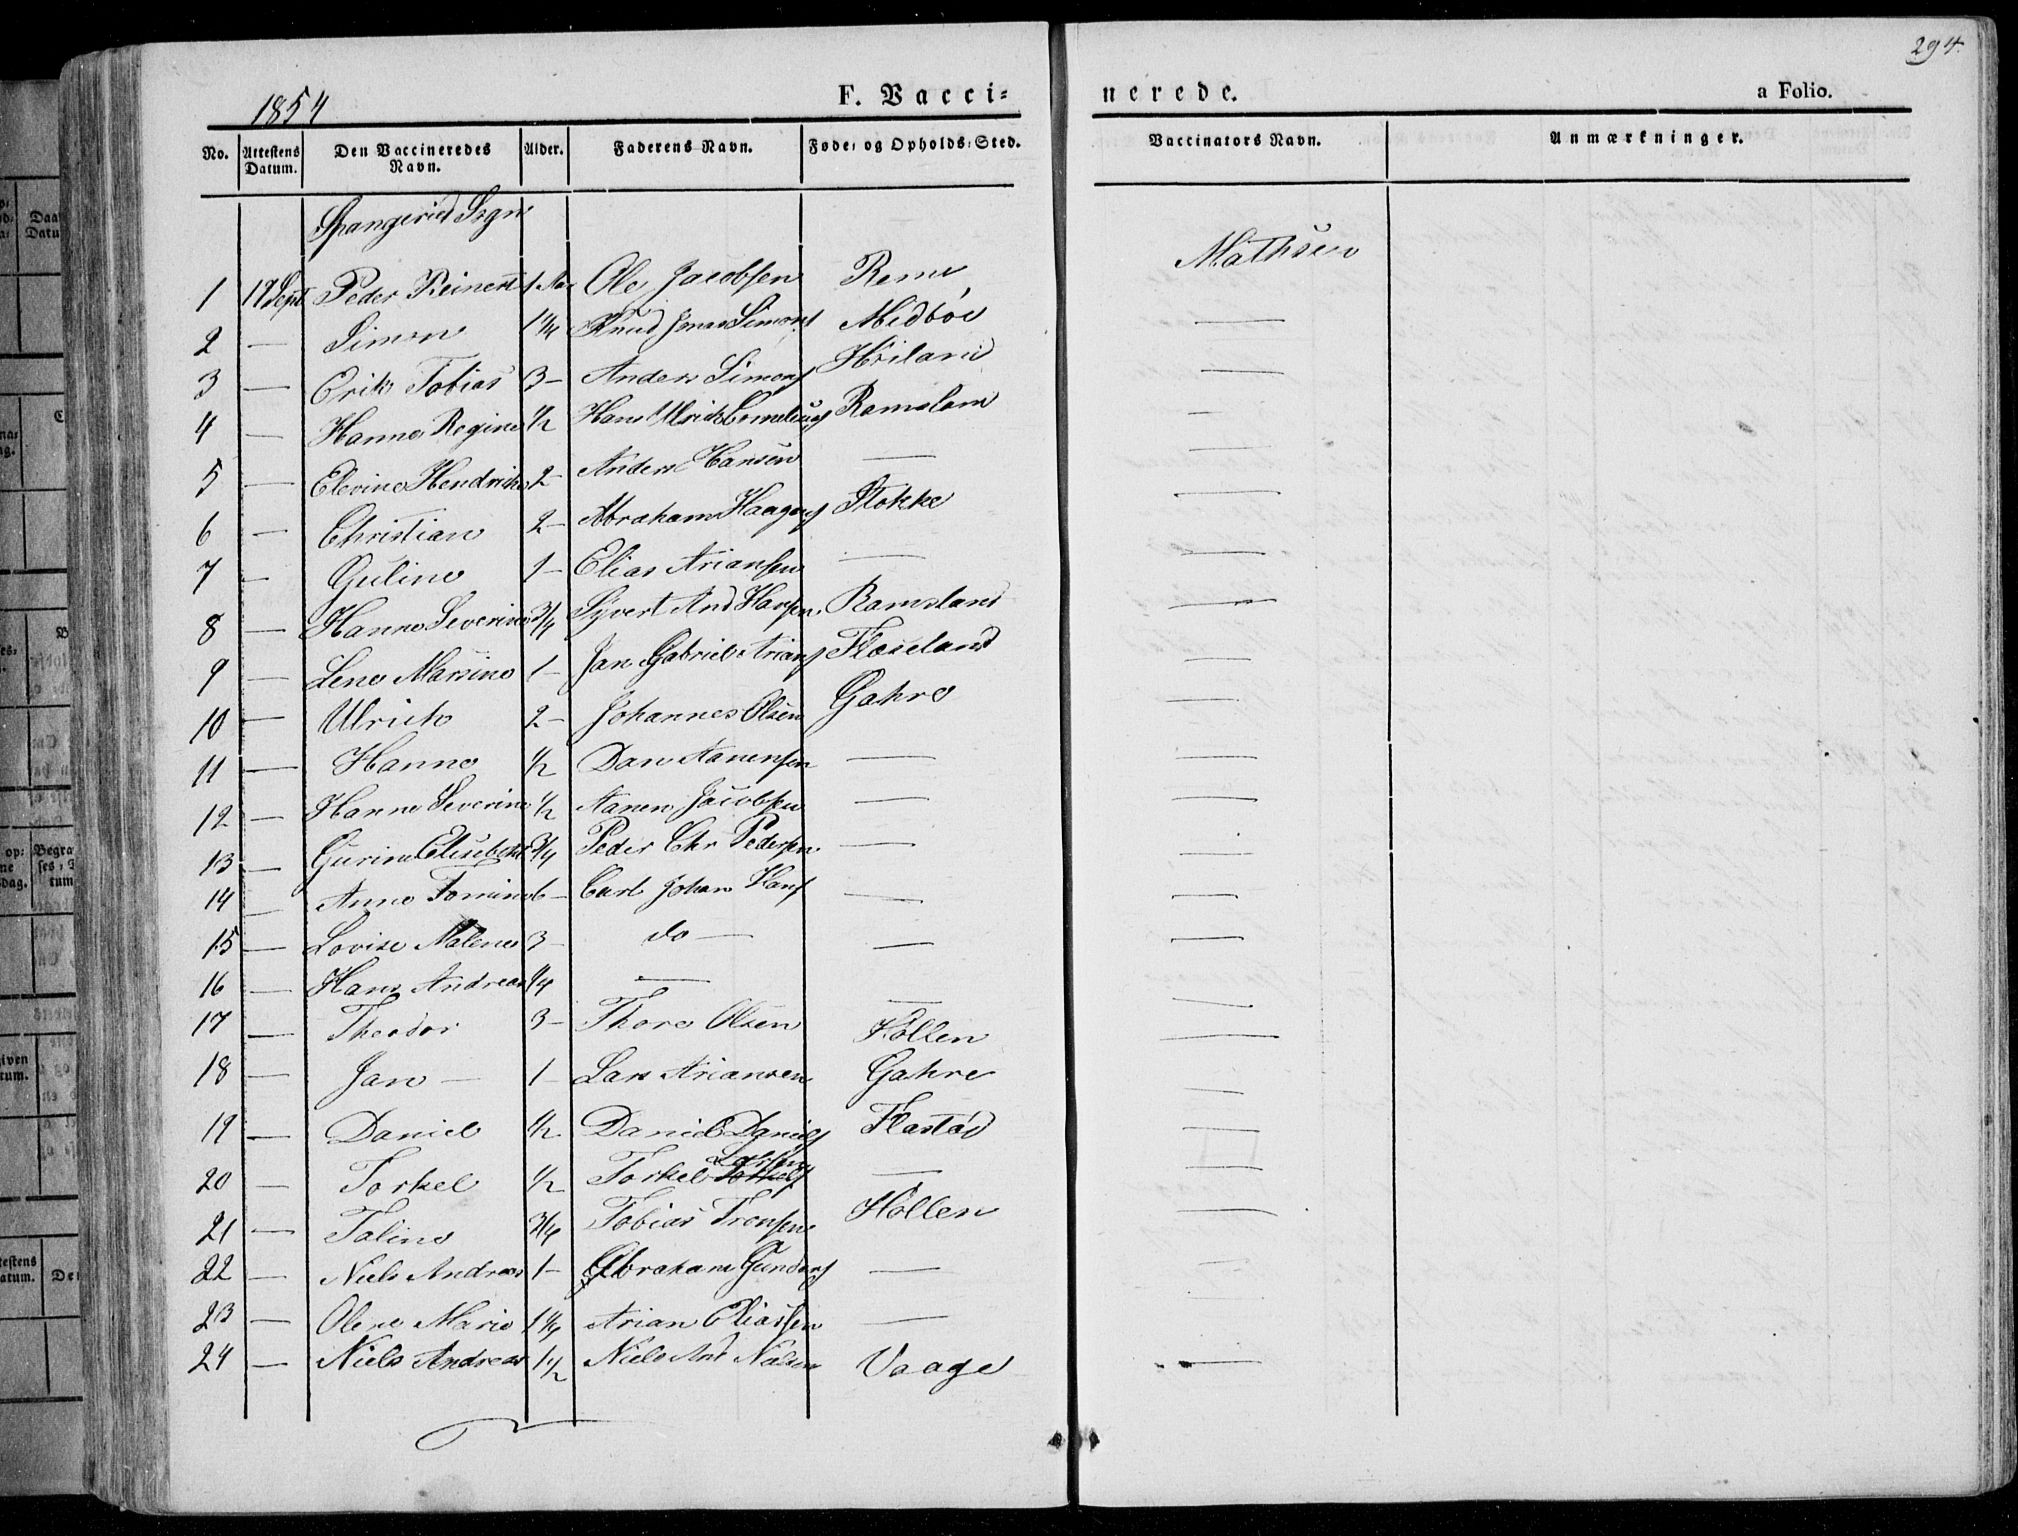 294.
1854
F. Vaccinerede.
a Folio.
No. | Attestens Datum. | Den Vaccineredes Navn. | Alder. | Faderens Navn. | Føde- og Opholds-Sted. | Vaccinators Navn. | Anmærkninger.
Spangerid Sogn
1 | 17 Sept | Peder Reinert | 1 Aar | Ole Jacobsen | Reme | Mathsen
2 | — | Simon | 1 1/4 | Knud Jonas Simons | Midbøe | —
3 | — | Erik Tobias | 3 — | Anders Simons | Høiland | —
4 | — | Hanne Regine | 1/2 | Hans Ulrich Corneliuss | Ramslam | —
5 | — | Elevine Hendrikke | 2 — | Anders Hansen | — | —
6 | — | Christian | 2 — | Abraham Haagens | Stokke | —
7 | — | Guline | 1 — | Elias Ariansen | — | —
8 | — | Hanne Severine | 3/4 | Syvert And Hansen | Ramsland | —
9 | — | Lene Marsine | 1 — | Jan Gabriel Arians | Floseland | —
10 | — | Ulrich | 2 — | Johannes Olsen | Gahre | —
11 | — | Hanne | 1/2 | Dan Aanensen | — | —
12 | — | Hanne Severine | 1/2 | Aanen Jacobsen | — | —
13 | — | Gurine Elisebeth | 3/4 | Peder Chr Pedersen | — | —
14 | — | Anne Tomine | 6 — | Carl Johan Hans | — | —
15 | — | Lovise Malene | 3 — | do — | — | —
16 | — | Hans Andreas | 1/4 | — | — | —
17 | — | Theodor | 3 — | Thore Olsen | Høllen | —
18 | — | Jan — | 1 — | Lars Ariansen | Gahre | —
19 | — | Daniel | 1/2 | Daniel Daniels | Flastød | —
20 | — | Torkel | 1/2 | Torkel Larsen | — | —
21 | — | Taline | 3/4 | Tobias Tronsen | Høllen | —
22 | — | Niels Andreas | 1 — | Abraham Gunders | — | —
23 | — | Olene Marie | 1 1/4 | Arian Eliassen | — | —
24 | — | Niels Andreas | 1 1/2 | Niels And Nielsen | Vaage | —